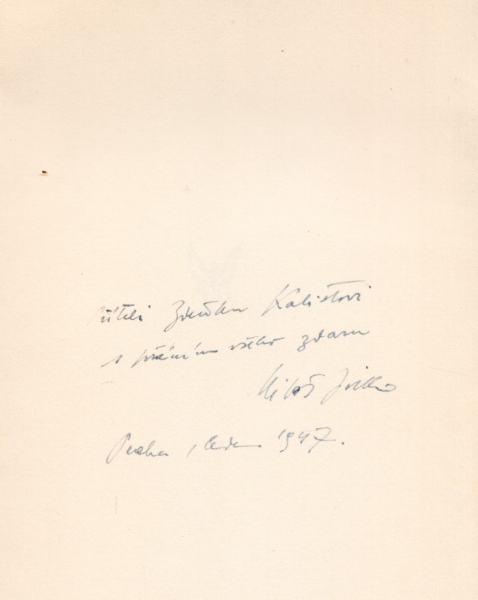 příteli Zdeňku Kalistovi
s přáním všeho zdaru
Miloš Jirko
Praha, leden 1947.